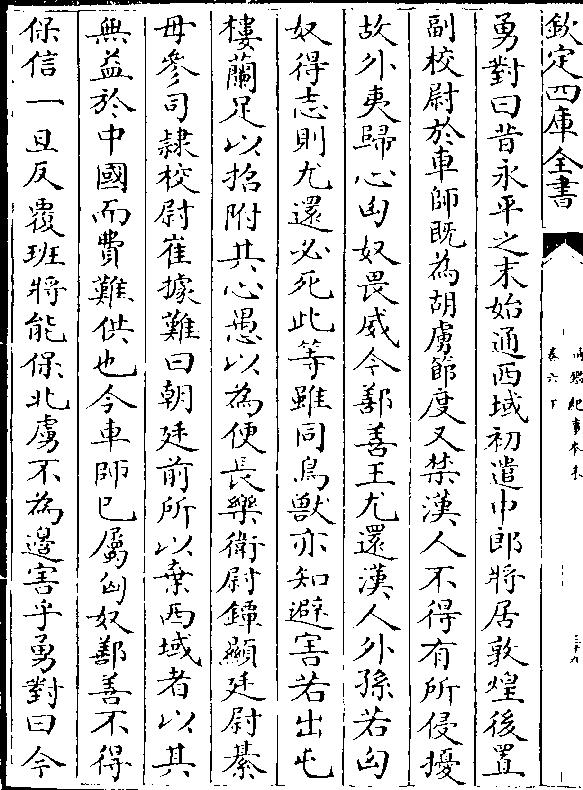 欽定四庫全書
卷六下
三十九
勇對曰昔永平之末始通西域初遣中郎將居敦煌後置
副校尉於車師既為胡虜節度又禁漢人不得有所侵擾
故外夷歸心匈奴畏威今鄯善王尤還漢人外孫若匈
奴得志則尤還必死此等雖同鳥獸亦知避害若出屯
樓蘭足以招附其心愚以為便長樂衛尉鐔顯廷尉綦
毋參司隷校尉崔據難曰朝廷前所以棄西域者以其
無益於中國而費難供也今車師已屬匈奴鄯善不得
保信一旦反覆班將能保北虜不為邊害乎勇對曰今